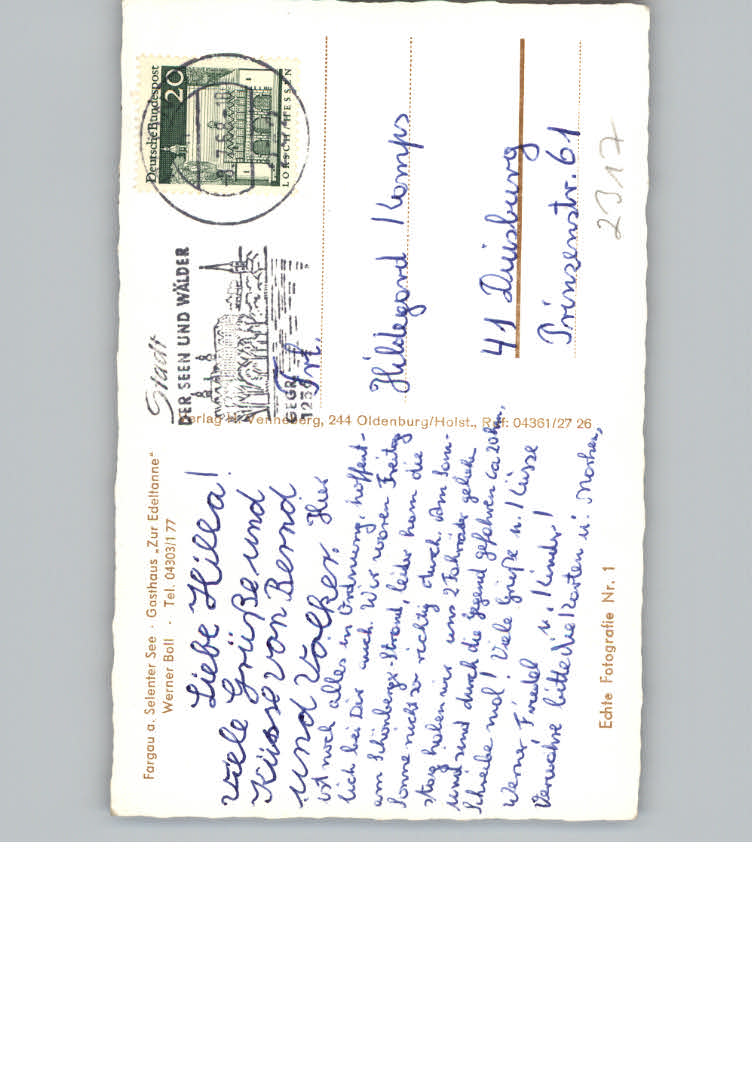 Fargau a. Selenter See · Gasthaus „Zur Edeltanne"
Werner Boll · Tel. 04303/1 77
Liebe Hilla!
Viele Grüße und
Küsse von Bernd
und Volker. Hier
ist noch alles in Ordnung, hoffent-
lich bei Dir auch. Wir waren Freitag
am Schönberger-Strand, leider kam die
Sonne nicht so richtig durch. Am Sonn-
tag haben wir uns 2 Fahrräder geliehen
und sind durch die Gegend gefahren ca 20 km,
Schreibe mal! Viele Grüße u. Küsse
Werner Friedel u. Kinder!
Verwahre bitte die Karten u. Marken,
Echte Fotografie Nr. 1
Verlag H. Venneberg, 244 Oldenburg/Holst., Ruf: 04361/27 26
Stadt
DER SEEN UND WÄLDER
GEGR.
Deutsche Bundespost
20
LORSCH/HESSEN
Frl.
Hildegard Kamps
41 Duisburg
Prinzenstr. 61
2317